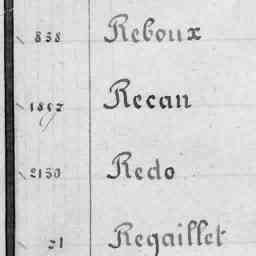 838 Reboux
1897 Recan
2130 Redo
21 Regaillet